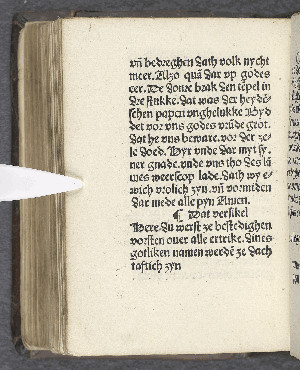 vñ bedreghen dath volk nycht
meer. Alzo quã dar vp godes
eer. De douve brak den tẽpel in
dre stukke. dat was der heydẽ-
schen papen vnghelukke Byd
det vor vns godes vrũde grot.
dat he vns beware. vor der ze-
le doed. Hyr vnde dar myt sy-
ner gnade. vnde vns tho des lã-
mes weerscop lade. dath wy e-
wich vrolich zyn. vñ vormiden
dar mede alle pyn Amen.
¶ Dat versikel
Here du werst ze bestedighen
vorsten ouer alle ertrike. dines
gotliken namen werdẽ ze dach
taftich zyn